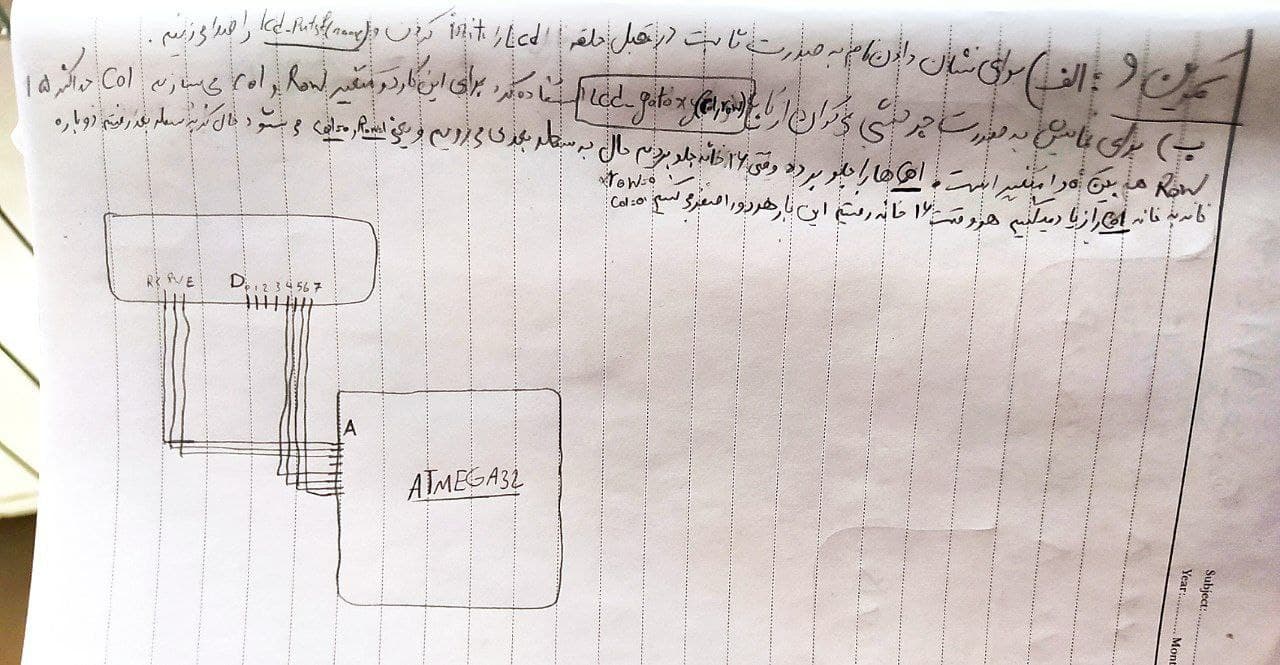 تمرین و : الف) برای نشان دادن نام به صورت ثابت در قبل حلقه lcd را init کردن و lcd_putsf(name) را صدا می زنیم.
ب) برای نمایش به صورت چرخشی می توان از تابع lcd_gotoxy(col,row) استفاده کرد برای این کار دو متغیر Row و Col می سازیم Col حداکثر ۱۵
Row هم بین ۰ و ۱ متغیر است. ها را جلو برده وقتی ۱۶ خانه جلو بردیم حال به سطر بعدی می رویم و یعنی col=0, Row=1 می شود حال که به سطر بعد رفتیم دوباره
خانه به خانه Col را زیاد میکنیم هر وقت ۱۶ خانه رفتیم این بار هر دو را صفر می کنیم row=0 col=0
RS RW E D0 1 2 3 4 5 6 7
A
ATMEGA32
Subject:
Year: Mont